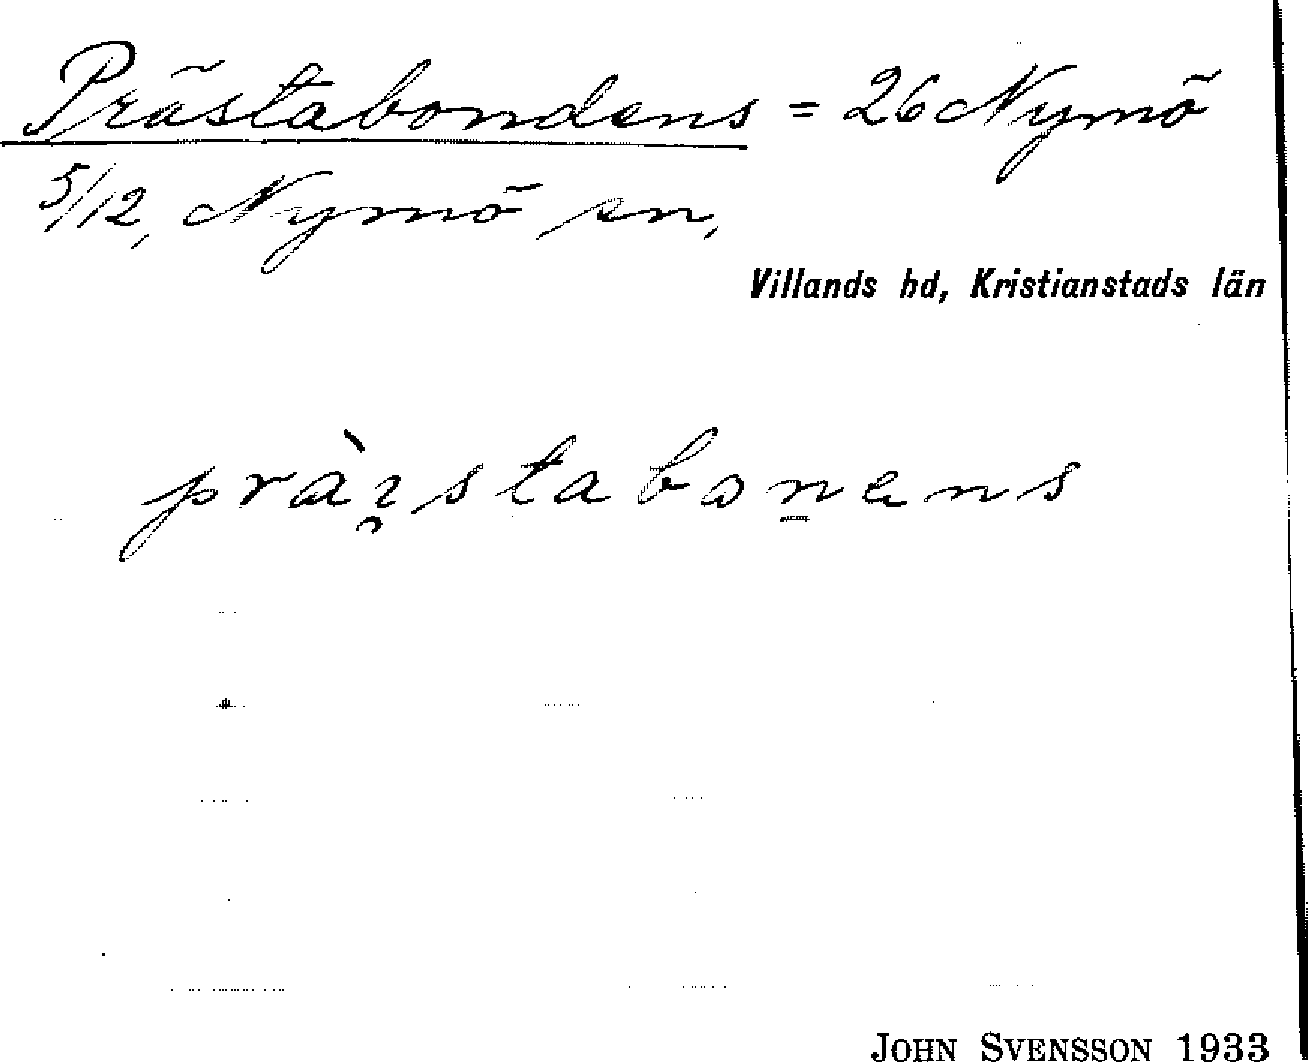 Prästabondens = 26 Nymö
5/12, Nymö sn,
Villands hd, Kristianstads län
pràı̯stabonens
JOHN SVENSSON 1933